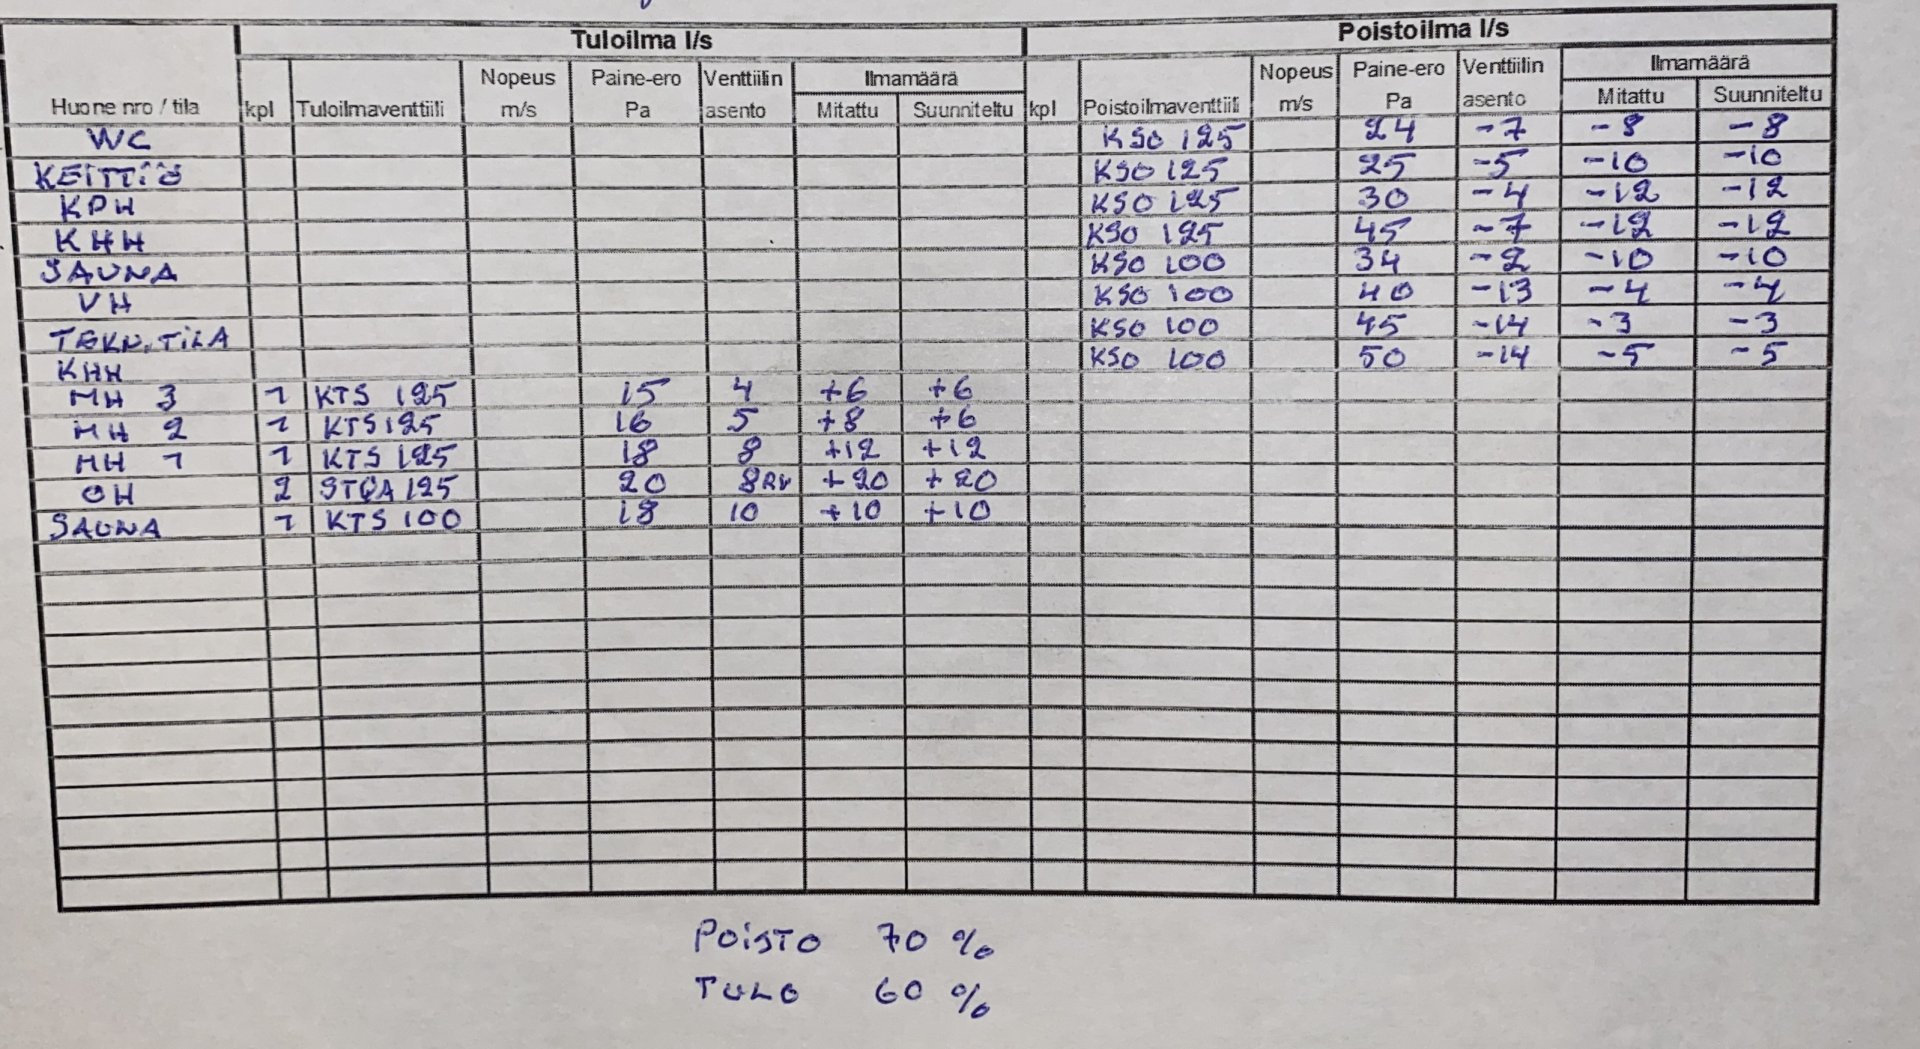 Tuloilma l/s Poistoilma l/s
Huone nro / tila kpl Tuloilmaventtiili Nopeus m/s Paine-ero Pa Venttiilin asento Ilmamäärä Mitattu Suunniteltu kpl Poistoilmaventtiili Nopeus m/s Paine-ero Pa Venttiilin asento Ilmamäärä Mitattu Suunniteltu
WC KSO 125 24 -7 -8 -8
KEITTIÖ KSO 125 25 -5 -10 -10
KPH KSO 125 30 -4 -12 -12
KHH KSO 125 45 -7 -12 -12
SAUNA KSO 100 34 -2 -10 -10
VH KSO 100 40 -13 -4 -4
TEKN. TILA KSO 100 45 -14 -3 -3
KHH KSO 100 50 -14 -5 -5
MH 3 1 KTS 125 15 4 +6 +6
MH 2 1 KTS 125 16 5 +8 +6
MH 1 1 KTS 125 18 8 +12 +12
OH 2 125 20 +20 +20
SAUNA 1 KTS 100 18 10 +10 +10
POISTO 70 %
TULO 60 %